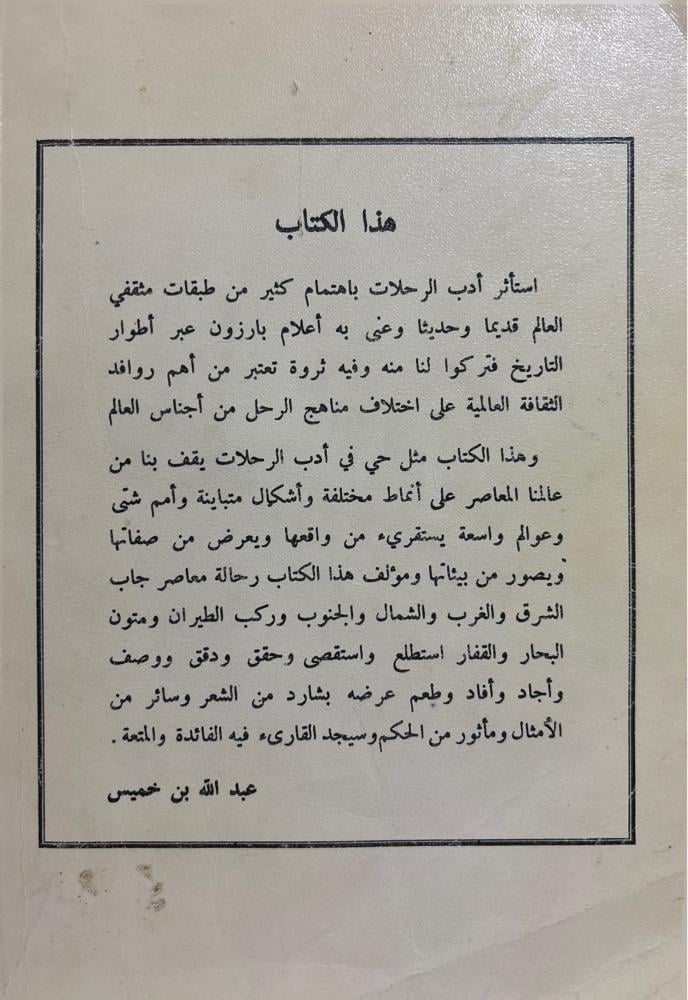 هذا الكتاب
استأثر أدب الرحلات باهتمام كثير من طبقات مثقفي
العالم قديما وحديثا وعنى به أعلام بارزون عبر أطوار
التاريخ فتركوا لنا منه وفيه ثروة تعتبر من أهم روافد
الثقافة العالمية على اختلاف مناهج الرحل من أجناس العالم
وهذا الكتاب مثل حي في أدب الرحلات يقف بنا من
عالمنا المعاصر على أنماط مختلفة وأشكال متباينة وأمم شتى
وعوالم واسعة يستقريء من واقعها ويعرض من صفاتها
ويصور من بيئاتها ومؤلف هذا الكتاب رحالة معاصر جاب
الشرق والغرب والشمال والجنوب وركب الطيران ومتون
البحار والقفار استطلع واستقصى وحقق ودقق ووصف
وأجاد وأفاد وطعم عرضه بشارد من الشعر وسائر من
الأمثال ومأثور من الحكم وسيجد القارىء فيه الفائدة والمتعة .
عبد الله بن خميس